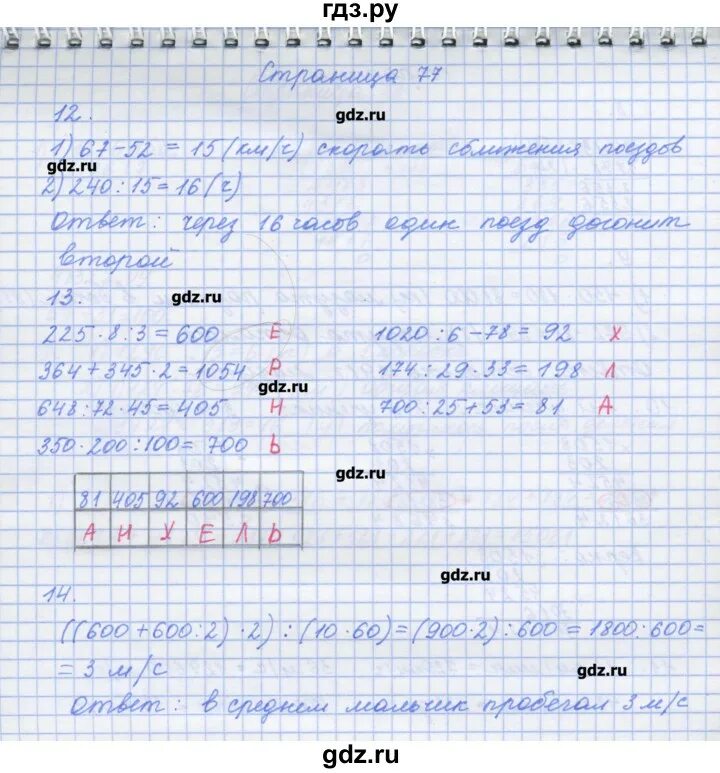 гдз.ру
Страница 77
12.
gdz.ru
1) 67-52 = 15 (км/ч) скорость сближения поездов
gdz.ru
2) 240:15=16 (ч)
Ответ: через 16 часов один поезд догонит
второй
13.
gdz.ru
225·8:3=600 Е 1020:6-78=92 Х
364+345·2=1054 Р 174:29·33=198 Л
gdz.ru
648:72·45=405 Н 700:25+53=81 А
350·200:100=700 Ь
gdz.ru
81 405 92 600 198 700
А Н Х Е Л Ь
gdz.ru
14.
((600+600:2)·2):(10·60)=(900·2):600=1800:600=
=3 м/с
gdz.ru
Ответ: в среднем мальчик пробегал 3 м/с
gdz.ru